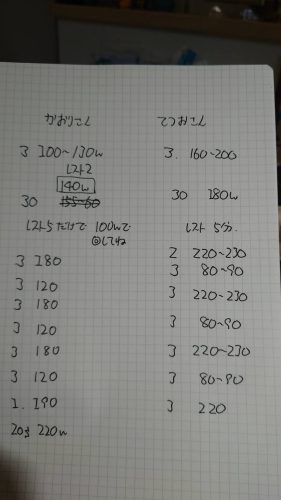 かおりこん
3 100~130w
レスト2
140w
30 155~60
レスト5だけで 100wで
回してね
3 180
3 120
3 180
3 120
3 180
3 120
1. 190
20世 220w
てつおこん
3. 160~200
30 180w
レスト 5分.
2 220~230
3 80~90
3 220~230
3 80~90
3 220~230
3 80~90
3 220